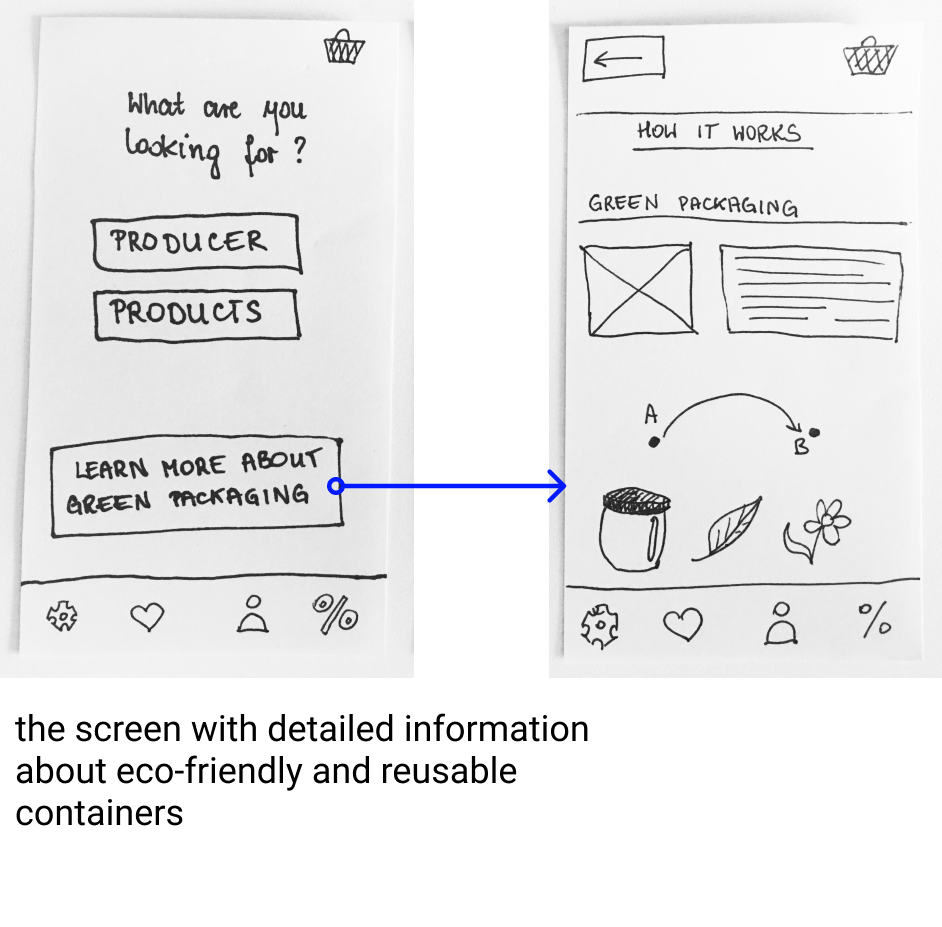 What are you
looking for?
PRODUCER
PRODUCTS
LEARN MORE ABOUT
GREEN PACKAGING
%
HOW IT WORKS
GREEN PACKAGING
A
B
%
the screen with detailed information
about eco-friendly and reusable
containers